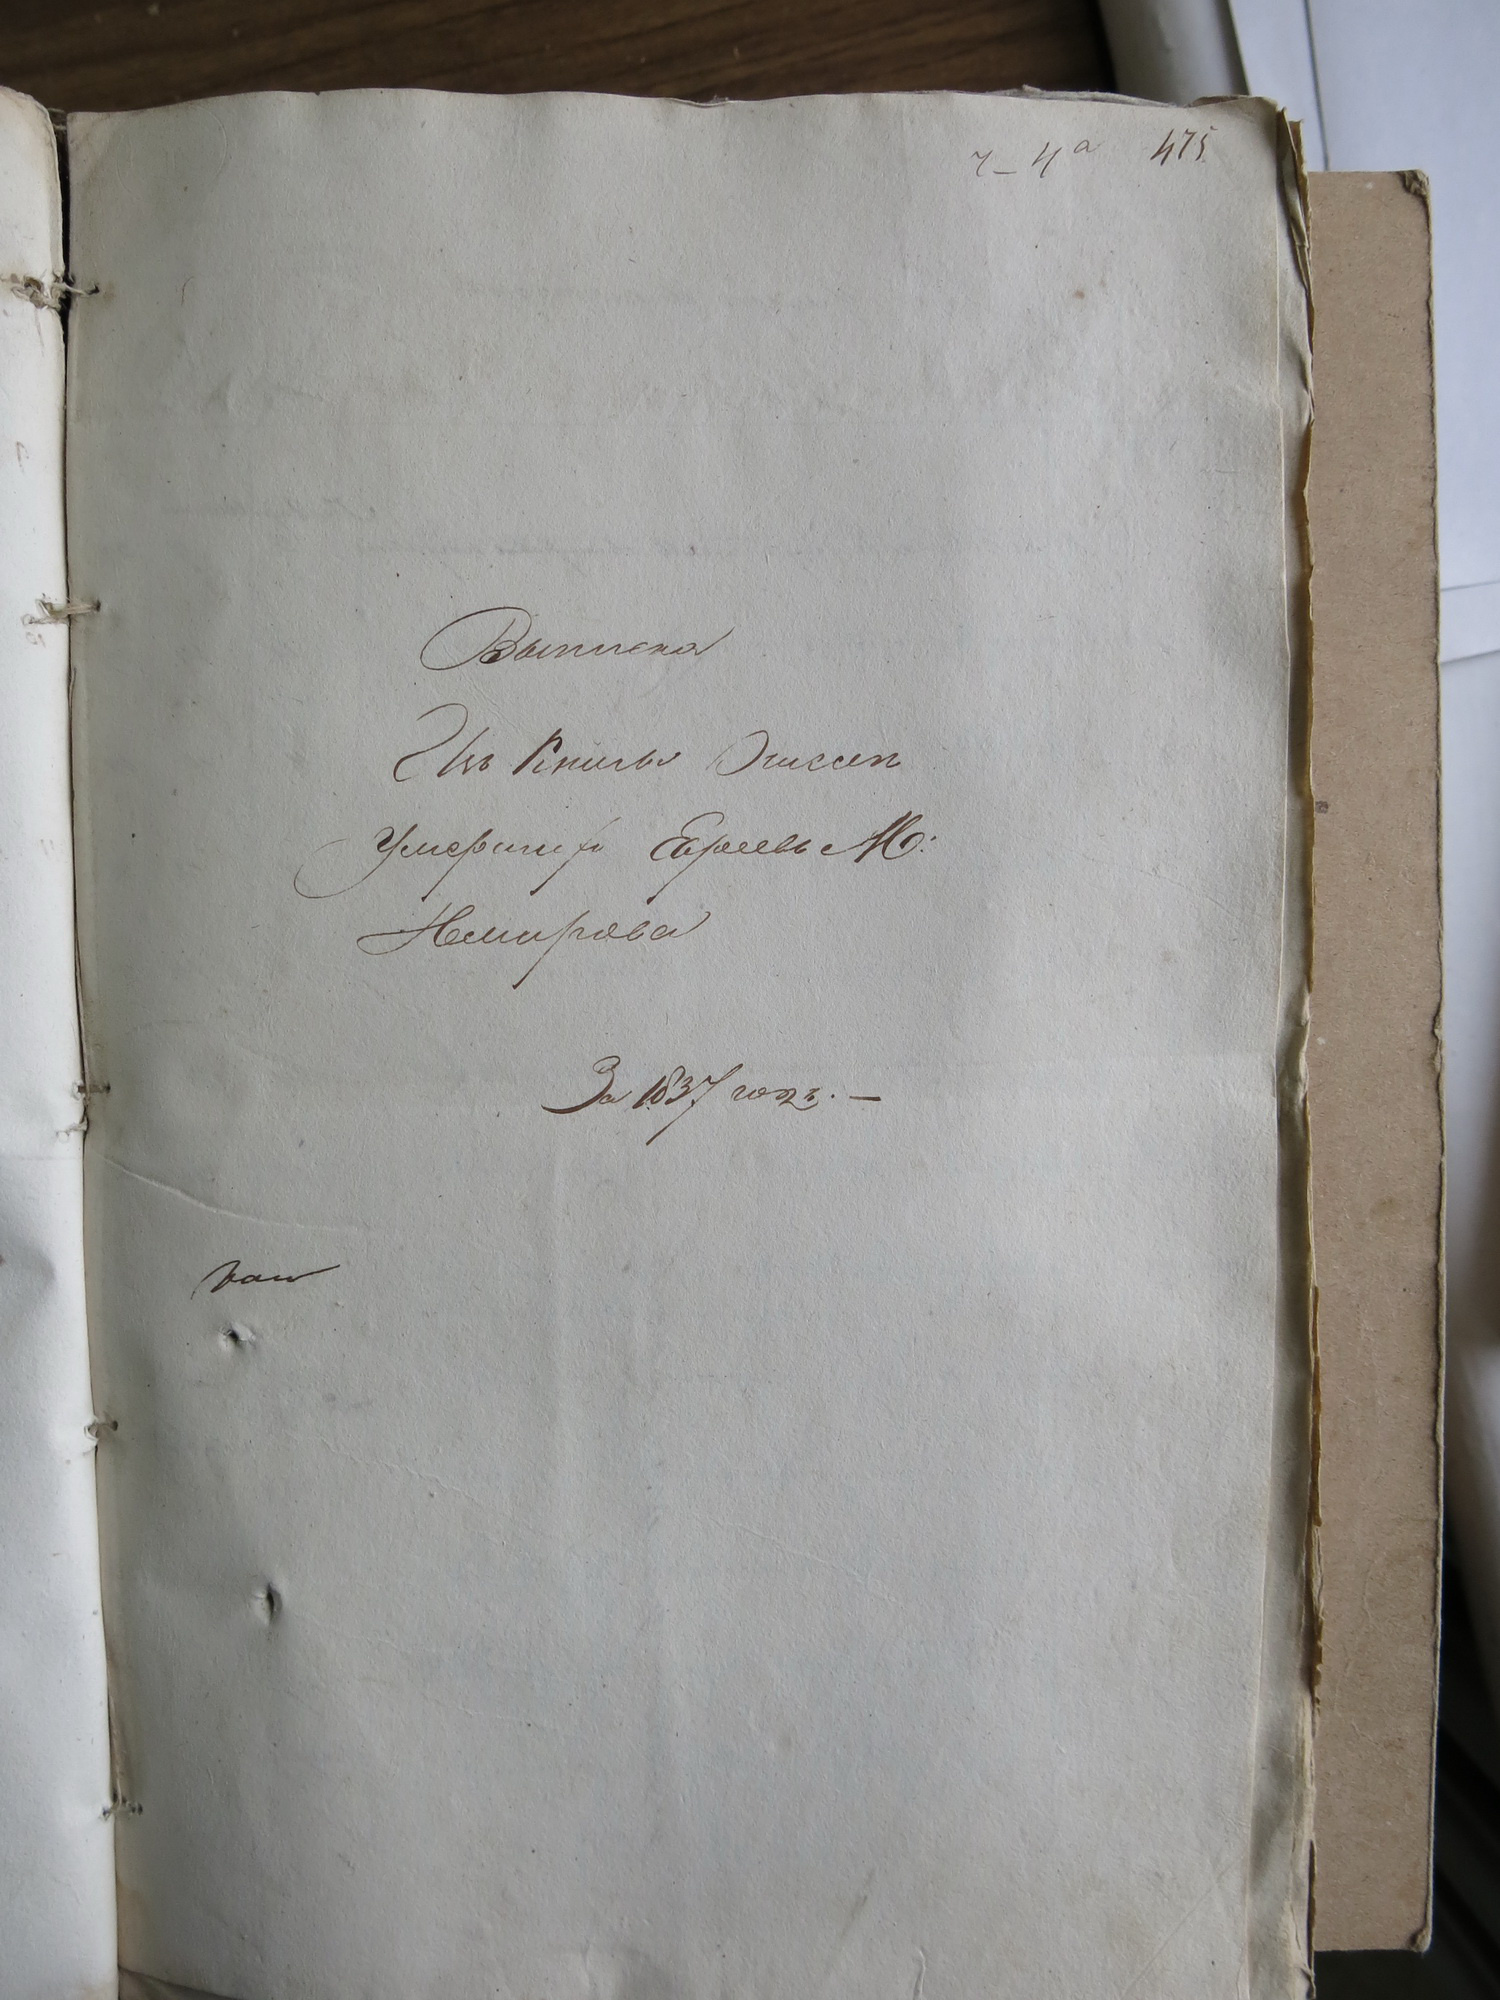 ч–4ª 475
Выписка
Изъ Книги О писсы
Умершихъ Евреевъ М:
Немирова
За 1837 годъ. —